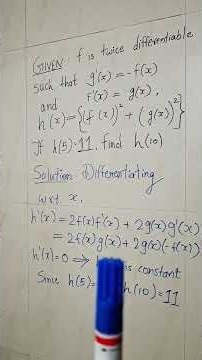 GIVEN: f is twice differentiable
such that g'(x) = -f(x)
and f'(x) = g(x),
h(x) = {(f(x))² + (g(x))²}
If h(5) = 11, find h(10)
Solution Differentiating
wrt x,
h'(x) = 2f(x)f'(x) + 2g(x)g'(x)
= 2f(x)g(x) + 2g(x)(-f(x))
h'(x) = 0 ⟹ is constant
Since h(5) = h(10) = 11